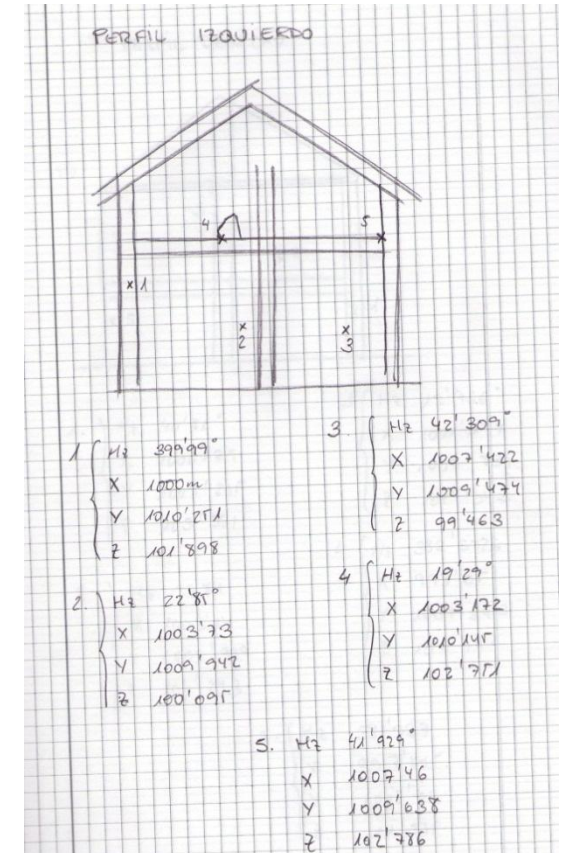 PERFIL IZQUIERDO
4
5
1
2
3
1 Hz 399'99°
X 1000m
Y 1010'251
Z 101'898
2. Hz 22'85°
X 1003'73
Y 1009'942
Z 100'095
3. Hz 42'309°
X 1007'422
Y 1009'474
Z 99'463
4 Hz 19'29°
X 1003'172
Y 1010'145
Z 102'751
5. Hz 41'929°
X 1007'46
Y 1009'638
Z 102'786